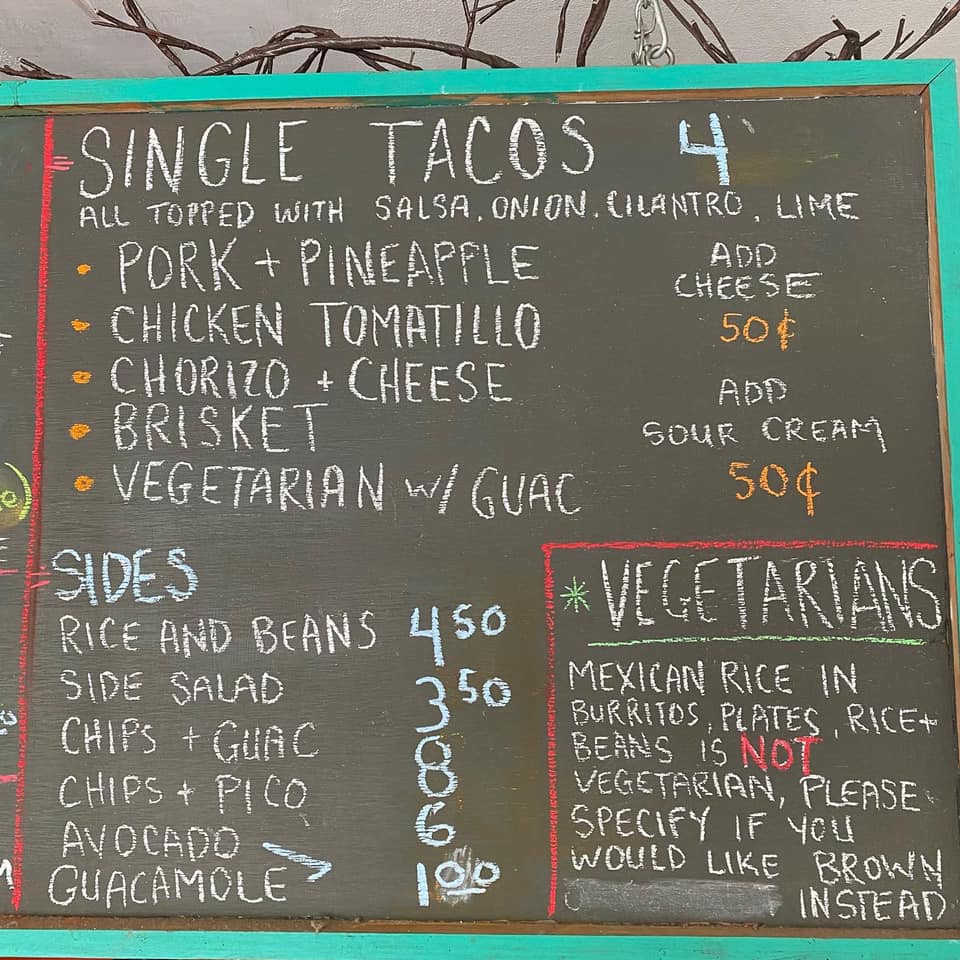 SINGLE TACOS 4
ALL TOPPED WITH SALSA, ONION, CILANTRO, LIME
• PORK + PINEAPPLE
• CHICKEN TOMATILLO
• CHORIZO + CHEESE
• BRISKET
• VEGETARIAN W/ GUAC
ADD
CHEESE
50¢
ADD
SOUR CREAM
50¢
SIDES
RICE AND BEANS 4 50
SIDE SALAD 3 50
CHIPS + GUAC 8
CHIPS + PICO 6
AVOCADO
GUACAMOLE > 1 00
* VEGETARIANS
MEXICAN RICE IN
BURRITOS, PLATES, RICE +
BEANS IS NOT
VEGETARIAN, PLEASE
SPECIFY IF YOU
WOULD LIKE BROWN
INSTEAD